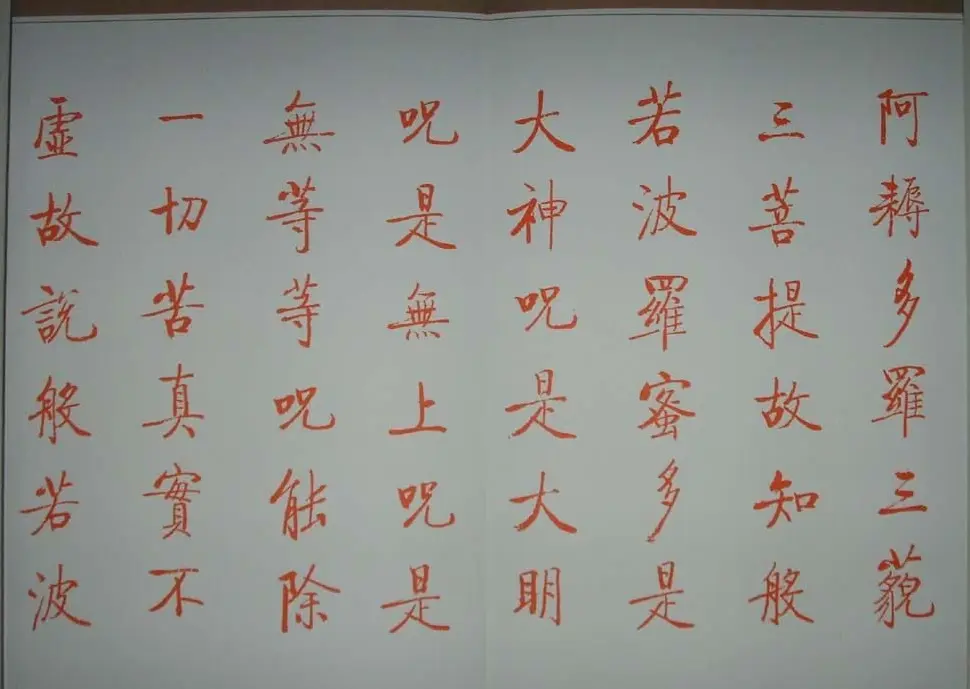 阿耨多羅三藐
三菩提故知般
若波羅蜜多是
大神呪是大明
呪是無上呪是
無等等呪能除
一切苦真實不
虛故說般若波